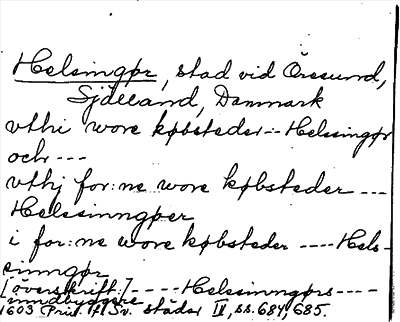 Helsingør, stad vid Öresund,
Själland, Danmark
vthi wore købsteder -- Helsingør
och ---
vthj for:ne wore købsteder ---
Helsinngøer
i for:ne wore købsteder ---- Hels-
sinngør
[överskrift:] ---- Helsinngørs ----
inndbyggere
1603 Priv. f. Sv. städer IV, ss. 684, 685.